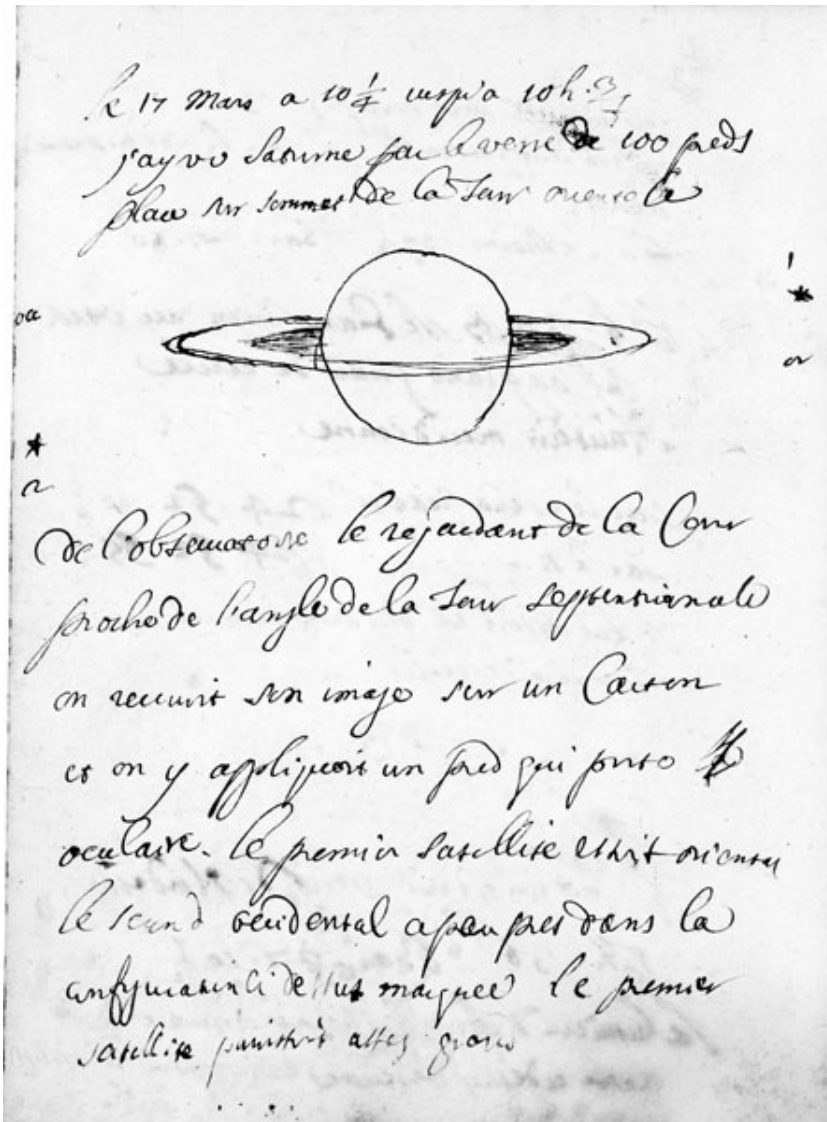 le 17 Mars a 10 1/4 jusqu'a 10 h. 3/4
j'ay vu Saturne par le verre de 100 pieds
place sur sommet de la Tour orientale
occ
1
2
1
2
de l'observatoire le regardant de la Cour
proche de l'angle de la Tour Septentrionale
on recevoit son image sur un Carton
et on y appliquoit un pied qui porte
oculaire. le premier Satellite estoit oriental
le second occidental a peu pres dans la
configuration ci dessus marquée le premier
satellite paroissoit assez grand